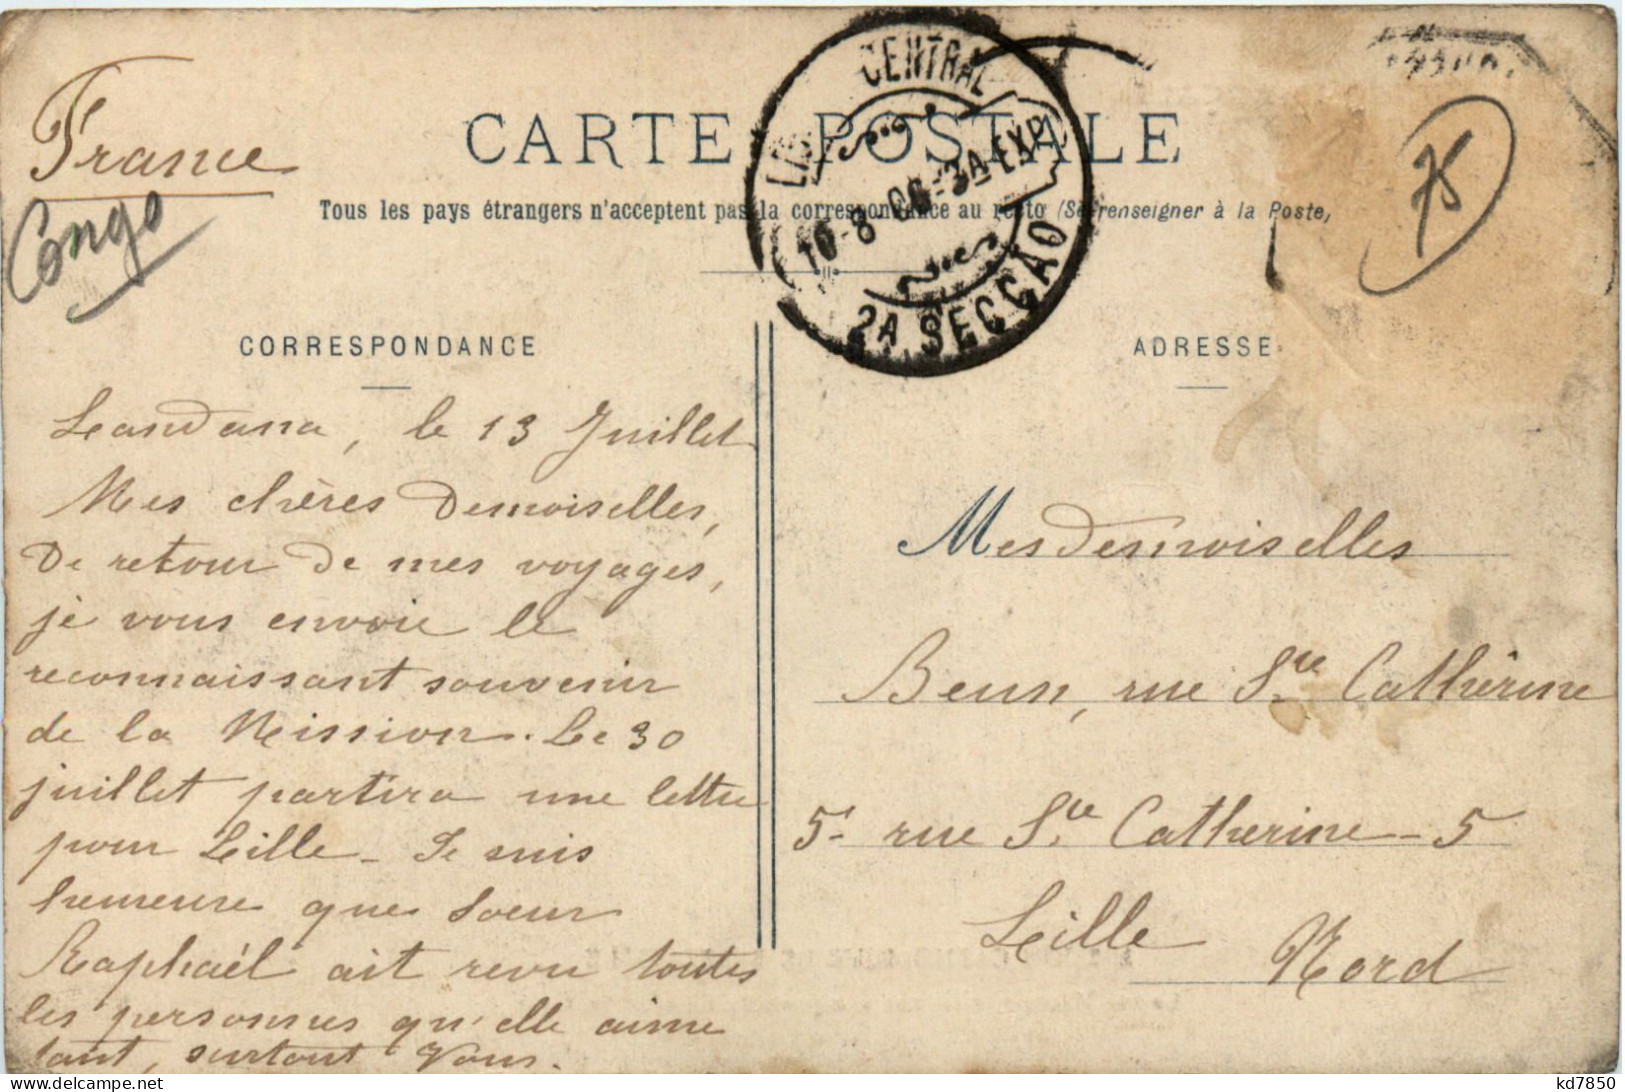 France
Congo
CARTE POSTALE
Tous les pays étrangers n'acceptent pas la correspondance au recto (Se renseigner à la Poste)
CENTRAL
10-8-06-3A EXP
2A SECÇÃO
75
CORRESPONDANCE
Landana, le 13 Juillet
Mes chères Demoiselles,
De retour de mes voyages,
je vous envoie le
reconnaissant souvenir
de la Mission. Le 30
juillet partira une lettre
pour Lille_ Je suis
heureuse que Soeur
Raphaël ait revu toutes
les personnes qu'elle aime
tant, surtout Vous.
ADRESSE
Mesdemoiselles
Beun, rue Ste Catherine
5- rue Ste Catherine - 5
Lille Nord
kd7850